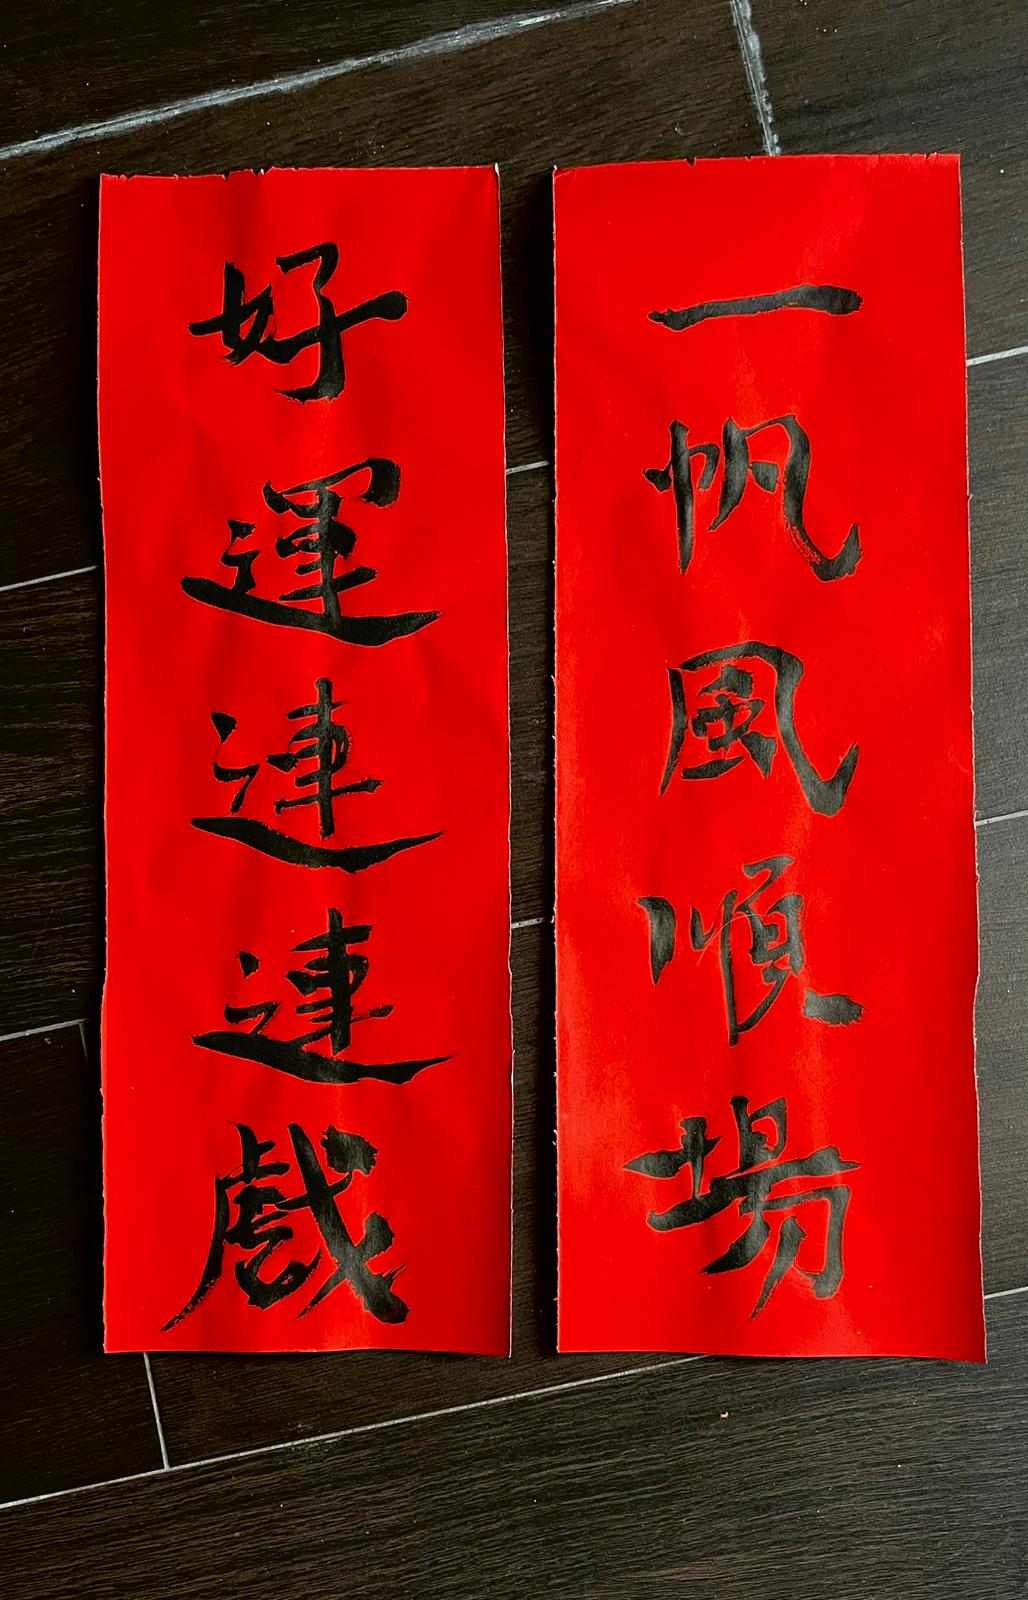 一帆風順場
好運連連戲